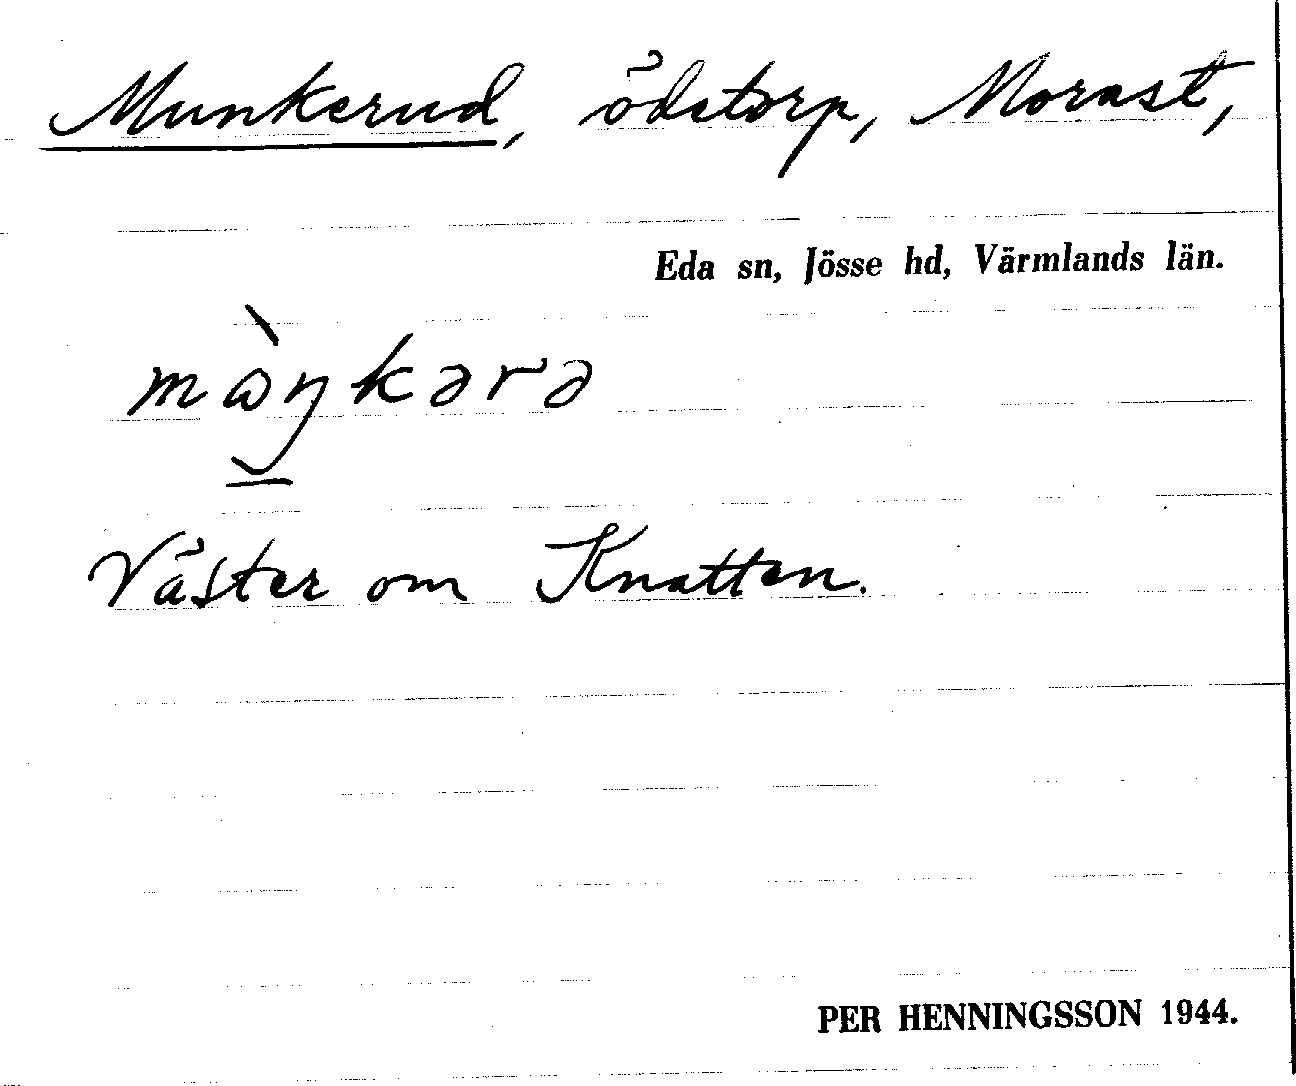 Munkerud, ödetorp, Morast,
Eda sn, Jösse hd, Värmlands län.
mὼŋkərə
Väster om Knatten.
PER HENNINGSSON 1944.